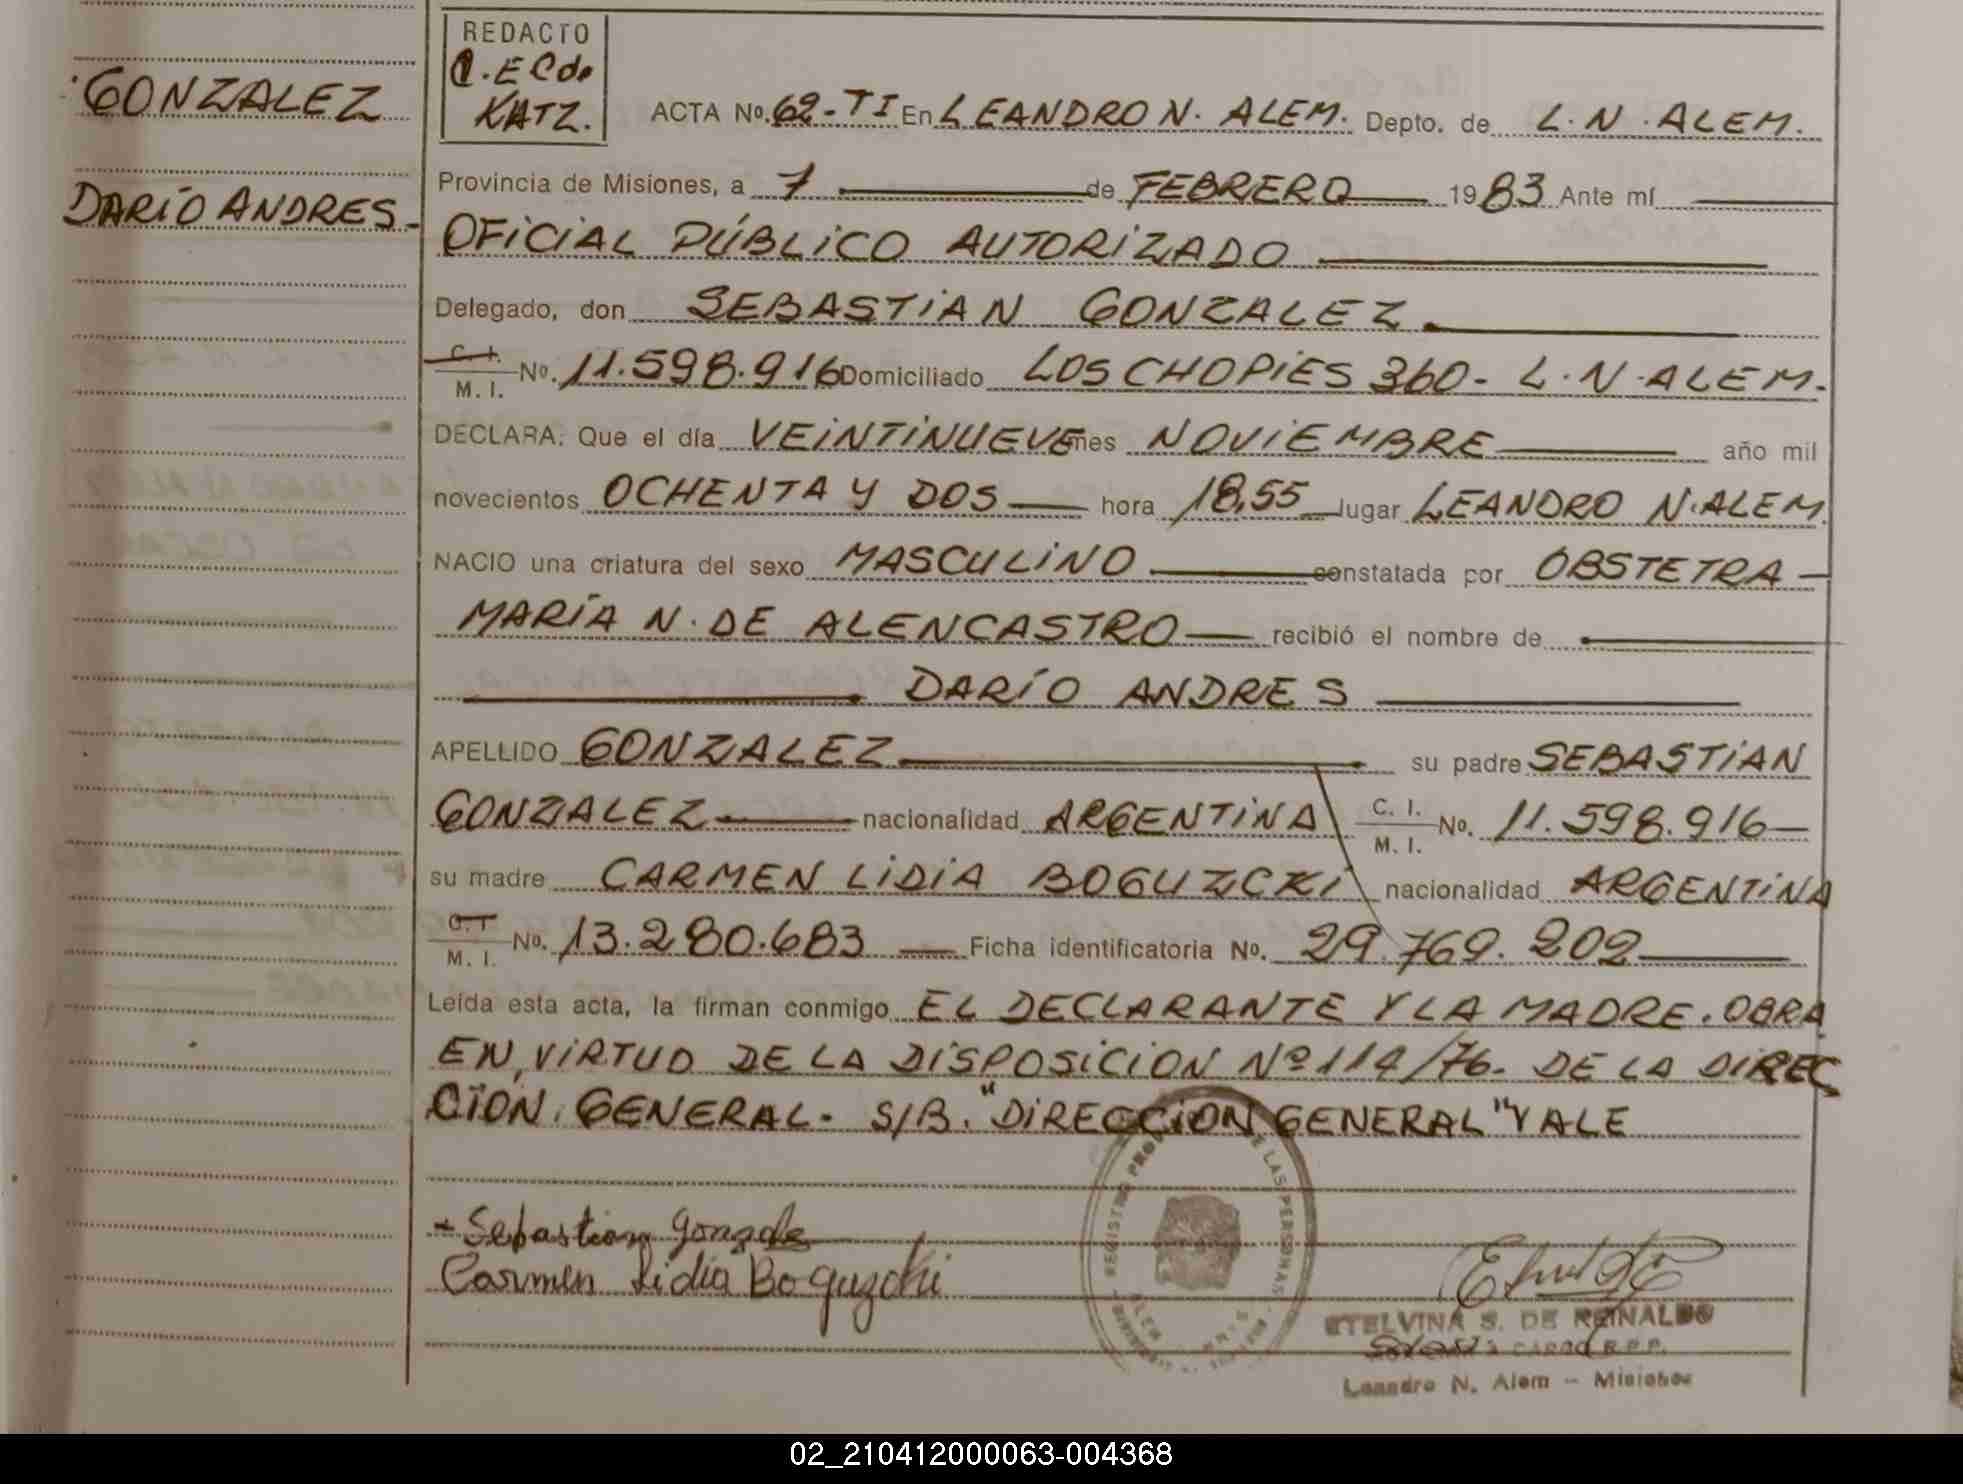 GONZALEZ
DARÍO ANDRES-
REDACTO
C. E C de
KATZ.
ACTA No. 62-TI En LEANDRO N. ALEM. Depto. de L. N. ALEM.
Provincia de Misiones, a 7 de FEBRERO 1983 Ante mí
OFICIAL PÚBLICO AUTORIZADO
Delegado, don SEBASTIAN GONZALEZ.
C. I.
M. I. No. 11.598.916 Domiciliado LOS CHOPIES 360- L. N. ALEM.
DECLARA: Que el día VEINTINUEVE mes NOVIEMBRE año mil
novecientos OCHENTA Y DOS hora 18,55 lugar LEANDRO N. ALEM.
NACIO una criatura del sexo MASCULINO constatada por OBSTETRA
MARÍA N. DE ALENCASTRO recibió el nombre de
DARÍO ANDRES
APELLIDO GONZALEZ su padre SEBASTIAN
GONZALEZ nacionalidad ARGENTINA C. I. M. I. No. 11.598.916
su madre CARMEN LIDIA BOGUZCKI nacionalidad ARGENTINA
C. I.
M. I. No. 13.280.683 Ficha identificatoria No. 29.769.202
Leída esta acta, la firman conmigo EL DECLARANTE Y LA MADRE. OBRA
EN VIRTUD DE LA DISPOSICION Nº 114/76- DE LA DIREC
CION GENERAL. S/B. "DIRECCION GENERAL" VALE
Sebastian Gonzalez
Carmen Lidia Boguzcki
REGISTRO PROV DE LAS PERSONAS
ETELVINA S. DE REINALDO
A CARGO R.P.P.
Leandro N. Alem - Misiones
02_210412000063-004368